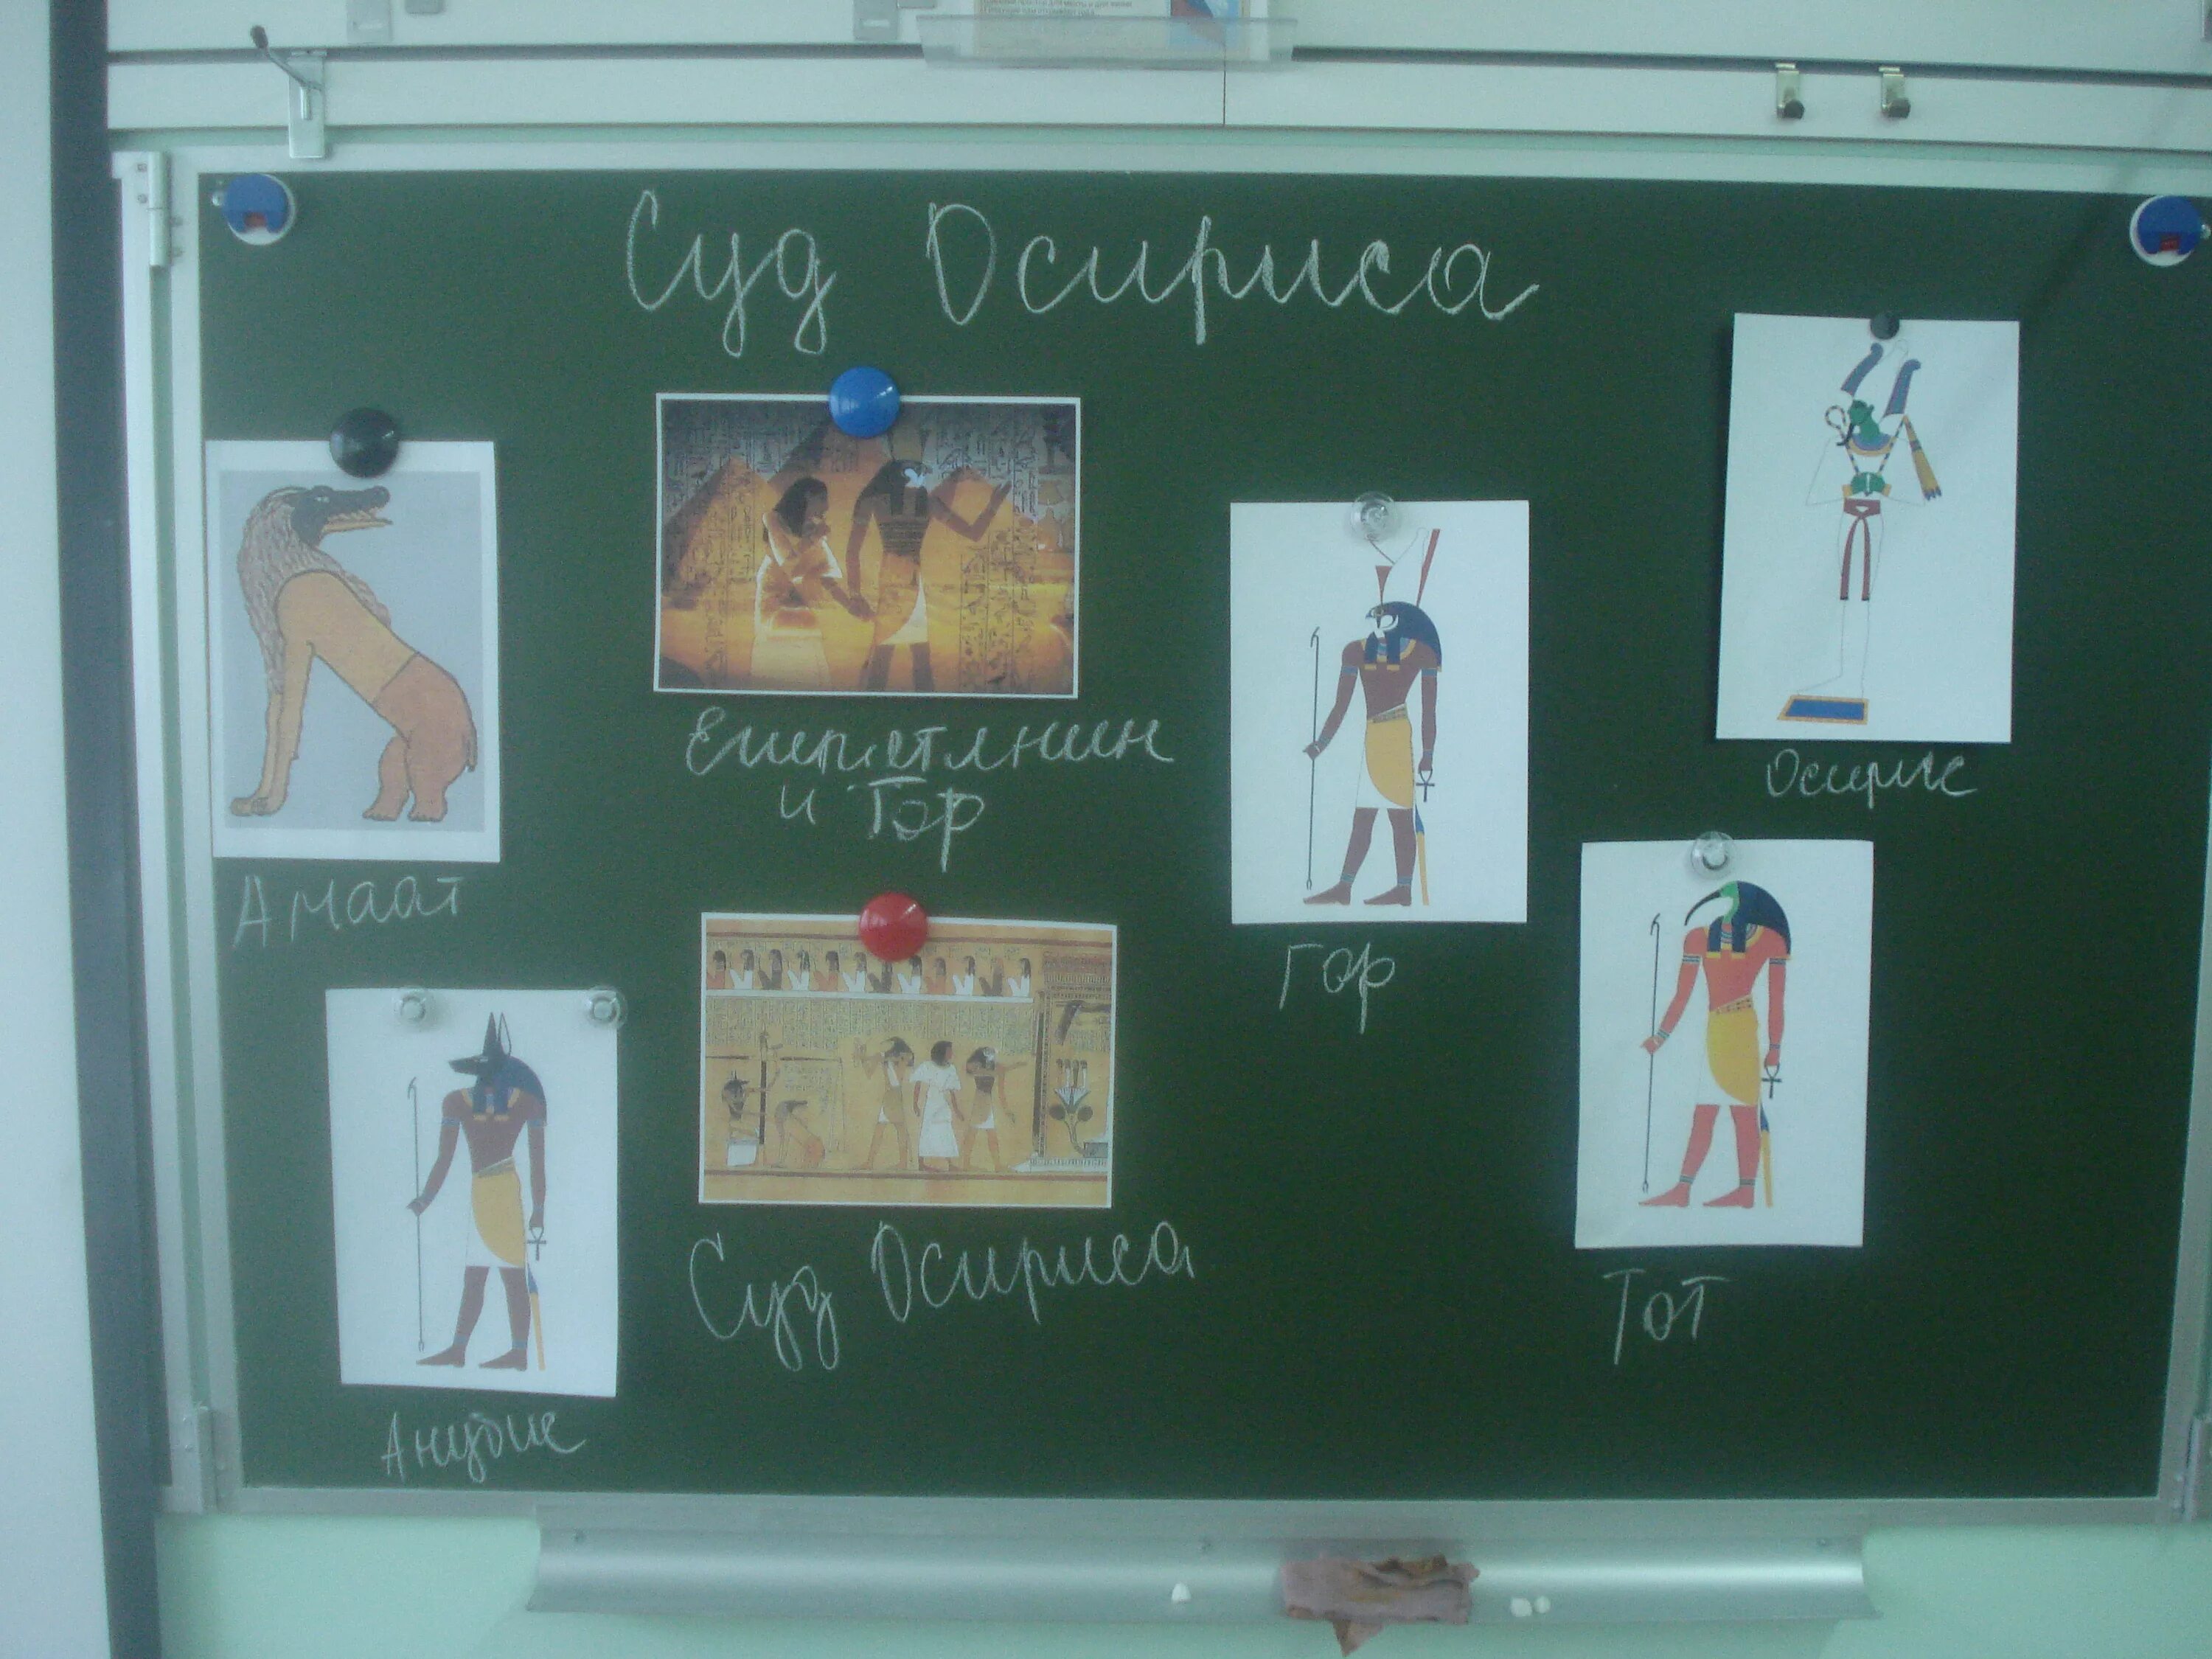 Суд Осириса
Осирис
Египетянин
и Гор
Амаат
Гор
Суд Осириса
Тот
Анубис